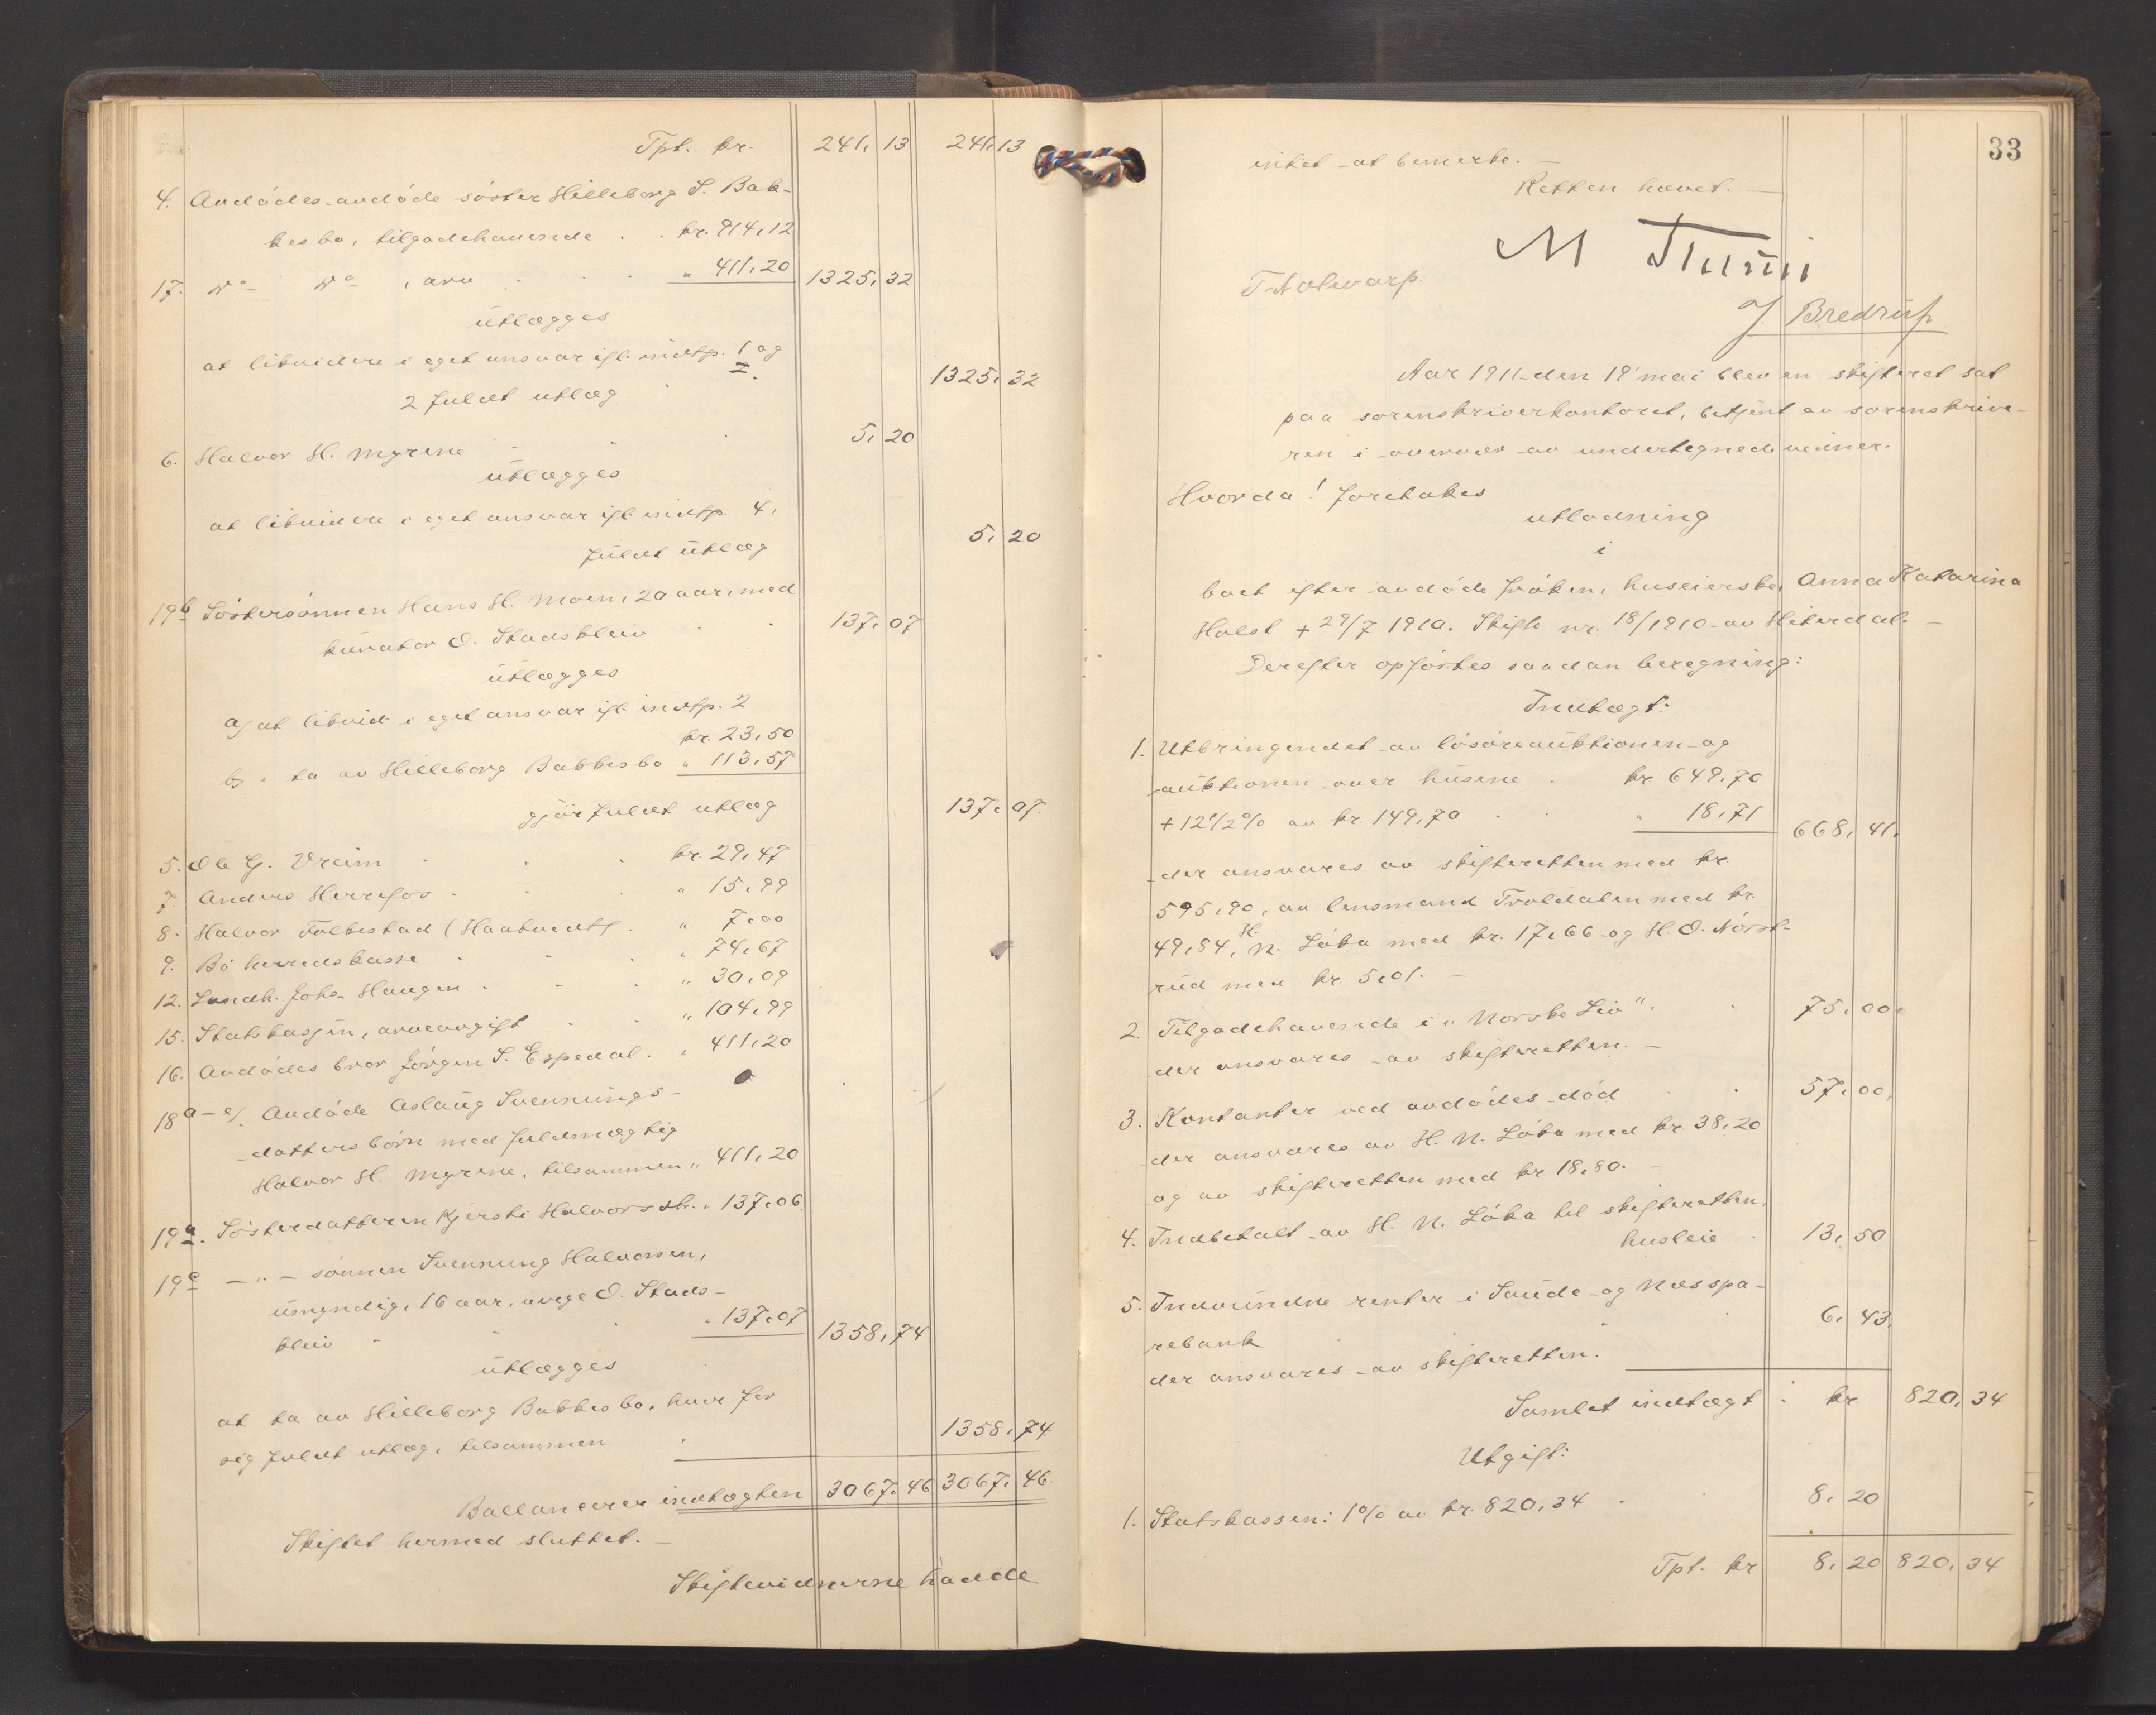 Tpt. kr. 241,13 241,13
4. Avdödes avdöde söster Hilleborg S. Bak-
kesbo, tilgodehavende . . kr. 914,12
17. do do , arv . . . " 411,20 1325,32
utlægges
at likvidere i eget ansvar ifl. indtp. 1 og
2 fuldt utlæg 1325,32
6. Halvor H. Myrene . . . 5,20
utlægges
at likvidere i eget ansvar ifl. indtp. 4,
fuldt utlæg 5,20
19b Söstersönnen Hans H. Moen, 20 aar, med
kurator O. Stadskleiv . . 137,07
utlægges
a) at likvid. i eget ansvar ifl. indtp. 2
kr. 23,50
b) " ta av Hilleborg Bakkesbo " 113,57
gjör fuldt utlæg 137,07
5. Ole G. Vreim . . . kr. 29,47
7. Anders Herrefos . . . " 15,99
8. Halvor Folkestad (Haatvedt) . " 7,00
9. Bö herredskasse . . . " 74,67
12. Landh. Johs. Haugen . . . " 30,09
15. Statskassen, arveavgift . . " 104,99
16. Avdödes bror Jörgen S. Espedal . " 411,20
18a-e). Avdöde Aslaug Svennungs-
datters börn med fuldmægtig
Halvor H. Myrene, tilsammen " 411,20
19a. Sösterdatteren Kjersti Halvorsdtr. " 137,06
19c — " — sönnen Svennung Halvorsen,
umyndig, 16 aar, verge O. Stads-
kleiv . . . " 137,07 1358,74
utlægges
at ta av Hilleborg Bakkesbo, hver for
sig fuldt utlæg, tilsammen . 1358,74
Ballancerer indtægten 3067,46 3067,46
Skiftet hermed sluttet. —
Skiftevidnerne hadde
33
intet at bemerke. —
Retten hævet. —
M
J. Bredrup
Aar 1911 den 19 mai blev en skifteret sat
paa sorenskriverkontoret, betjent av sorenskrive-
ren i overvær av undertegnede vidner.
Hvorda! foretokes
utlodning
i
boet efter avdöde fröken, huseierske Anna Katarina
Holst + 29/7 1910. Skifte nr. 18/1910 av Hiterdal. —
Derefter opförtes saadan beregning:
Indtægt:
1. Utbringendet av lösöreauktionen og
auktionen over husene . kr. 649,70
+ 12 1/2 % av kr. 149,70 . . " 18,71 668,41
der ansvares av skifteretten med kr.
595,90, av lensmand Troldalen med kr.
49,84, H. N. Löka med kr. 17,66 og H. O. Nörst-
rud med kr. 5,01. —
2. Tilgodehavende i "Norske Liv" . . 75,00
der ansvares av skifteretten. —
3. Kontanter ved avdödes död . . 57,00
der ansvares av H. N. Löka med kr. 38,20
og av skifteretten med kr. 18,80. —
4. Indbetalt av H. N. Löka til skifteretten,
husleie . 13,50
5. Indvundne renter i Saude og Nesspa-
rebank . . 6,43
der ansvares av skifteretten.
Samlet indtægt : kr. 820,34
Utgift:
1. Statskassen: 1% av kr. 820,34 . . 8,20
Tpt. kr. 8,20 820,34